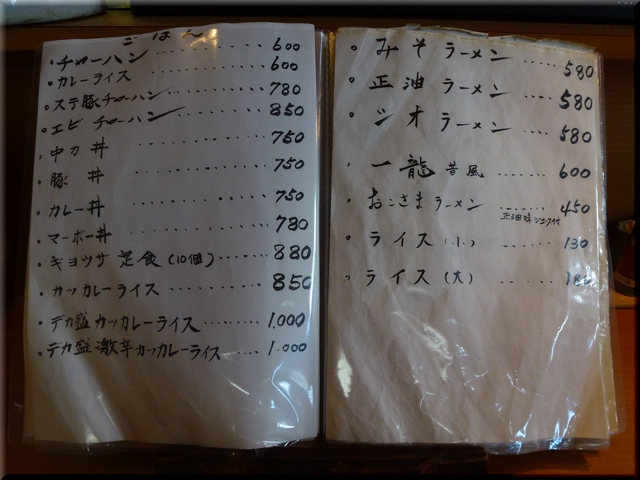 ごはん
・チャーハン ............ 600
・カレーライス ............ 600
・ステ豚チャーハン ............ 780
・エビチャーハン ............ 850
・中カ丼 ............ 750
・豚丼 ............ 750
・カレー丼 ............ 750
・マーボー丼 ............ 780
・ギョウザ定食(10個) ........ 880
・カツカレーライス ........ 850
・デカ盛カツカレーライス ........ 1.000
・デカ盛激辛カツカレーライス ..... 1.000
・みそラーメン ..... 580
・正油ラーメン ..... 580
・シオラーメン ..... 580
・一龍昔風 ....... 600
・おこさまラーメン ....... 450
正油味ジュース付
・ライス(小) ..... 130
・ライス(大) ..... 180